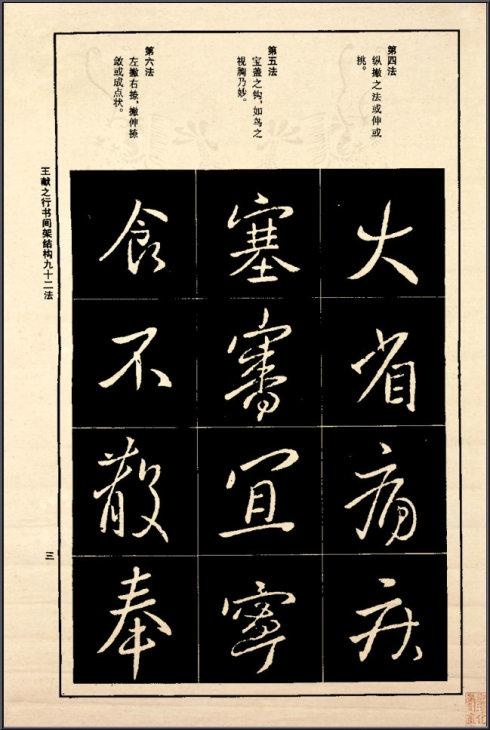 第四法
纵撇之法或伸或
挑。
火
省
病
疾
第五法
宝盖之钩,如鸟之
视胸乃妙。
塞
審
宜
寧
第六法
左撇右捺,撇伸捺
敛或成点状。
食
不
散
奉
王献之行书间架结构九十二法
三